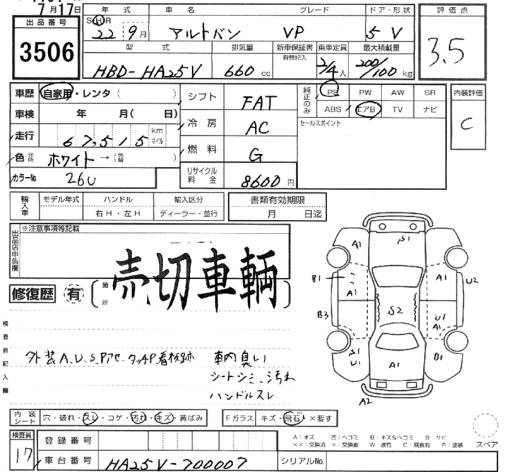 7月17日
出品番号 3506
年式 車名 グレード ドア・形状 評価点
S H R 22年 9月 アルトバン VP 5 V 3.5
型式 排気量 新車保証書 有無記入 乗車定員 最大積載量
HBD-HA25V 660 cc 2/4人 200/100 kg
車歴 自家用・レンタ( ) シフト FAT 純正のみ PS PW AW SR 内装評価
車検 年 月( 日) 冷房 AC ABS エアB TV ナビ C
走行 67,515 km マイル 燃料 G セールスポイント
色 ホワイト→( ) リサイクル料金 8600円
カラーNo 26U
輸入車 モデル年式 ハンドル 輸入区分 書類有効期限
右H・左H ディーラー・並行 月 日迄
※注意事項等記載
売切車輌
修復歴 有 箇所
検査員記入欄
外装A.U.S.Pアセ.タッチP看板跡 車内臭い
シートシミ、汚れ
ハンドルスレ
A1 S1 A1 U2
B1 A1 A1
B3 S2 U1 A1
S1 U1
A1 A1
A2
スペア
内装シート 穴・破れ・スレ・コゲ・汚れ・キズ・黄ばみ Fガラス キズ・飛石・×要す
検査員 17 登録番号
A:キズ U:凹 E:ヘコミ B:キズ&ヘコミ S:サビ
××:交換済 ×:交換要 W:波 C:腐食有 P:塗装
車台番号 HA25V-700007 シリアルNo.